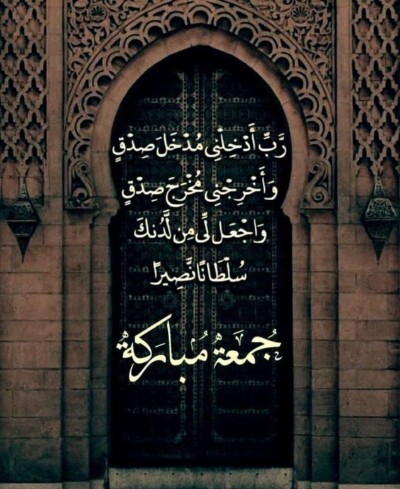 رَّبِّ أَدْخِلْنِي مُدْخَلَ صِدْقٍ
وَأَخْرِجْنِي مُخْرَجَ صِدْقٍ
وَاجْعَل لِّي مِن لَّدُنكَ
سُلْطَانًا نَّصِيرًا
جُمعَة مُباركَة